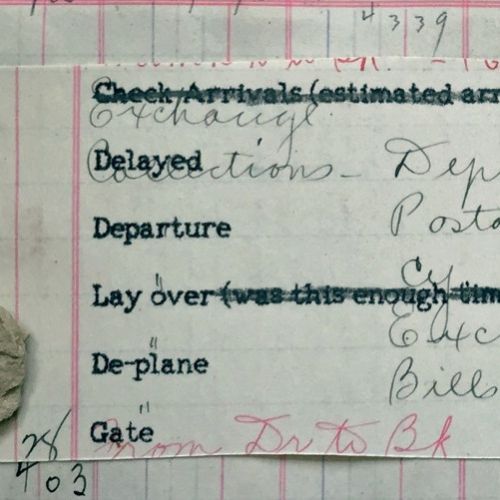 4339
Check Arrivals (estimated arr
Exchange
Delayed
Collections - Dep
Departure
Posta
Cy
Lay over (was this enough tim
Exc
De-plane
Bills
Gate
from Dr to Bk
28
403